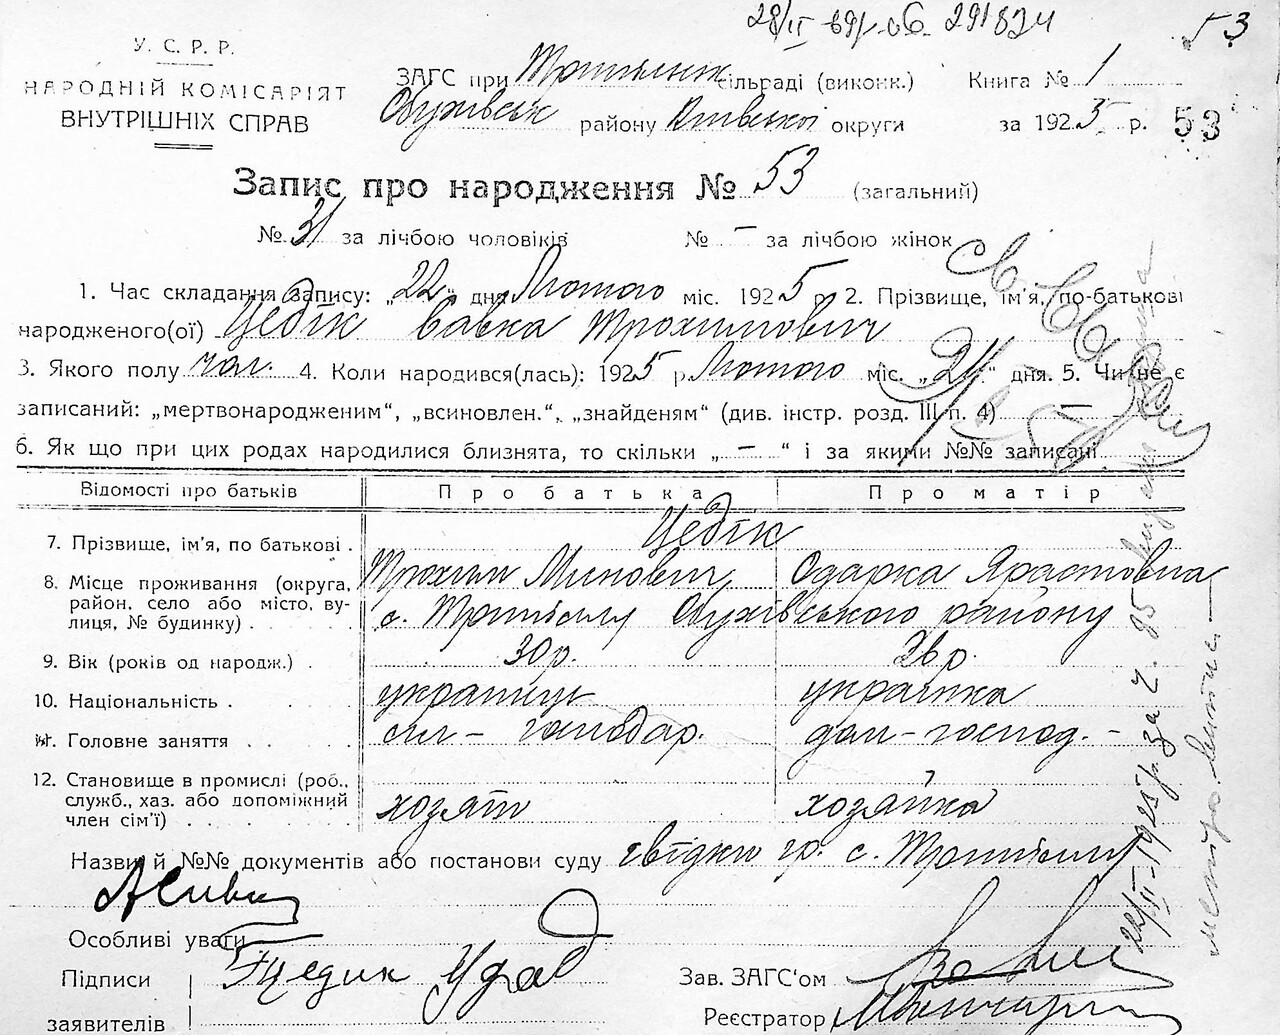 28/II-69р. 291834
53
У. С. Р. Р.
НАРОДНІЙ КОМІСАРІЯТ
ВНУТРІШНІХ СПРАВ
ЗАГС при Трипільск. сільраді (виконк.) Книга № 1
Обухівськ району Київської округи за 1925 р. 53
Запис про народження № 53 (загальний)
№ 31 за лічбою чоловіків № — за лічбою жінок
1. Час складання запису: „22“ дня Лютого міс. 1925 р. 2. Прізвище, ім'я, по-батькові
народженого(ої) Цедік Савка Трохимович
3. Якого полу чол. 4. Коли народився(лась): 1925 р. Лютого міс. „21“ дня. 5. Чи не є
записаний: „мертвонародженим“, „всиновлен.“, „знайденям“ (див. інстр. розд. III п. 4) —
6. Як що при цих родах народилися близнята, то скільки „—“ і за якими №№ записані
Відомості про батьків Про батька Про матір
Цедік
7. Прізвище, ім'я, по батькові .
Трохим Минович Одарка
8. Місце проживання (округа, район, село або місто, вулиця, № будинку) . .
с. Трипілля Обухівського району
9. Вік (років од народж.) . 30 р. 26 р.
10. Національність . українець українка
11. Головне заняття . . сіл-господар. дом-господ. -
12. Становище в промислі (роб., служб., хаз. або допоміжний член сім'ї) . .
хозяїн хозяйка
Назви й №№ документів або постанови суду свідки гр. с. Трипілля
Особливі уваги
Підписи
заявителів
Зав. ЗАГС'ом
Реєстратор
22/II-1925 р. за ч. 85